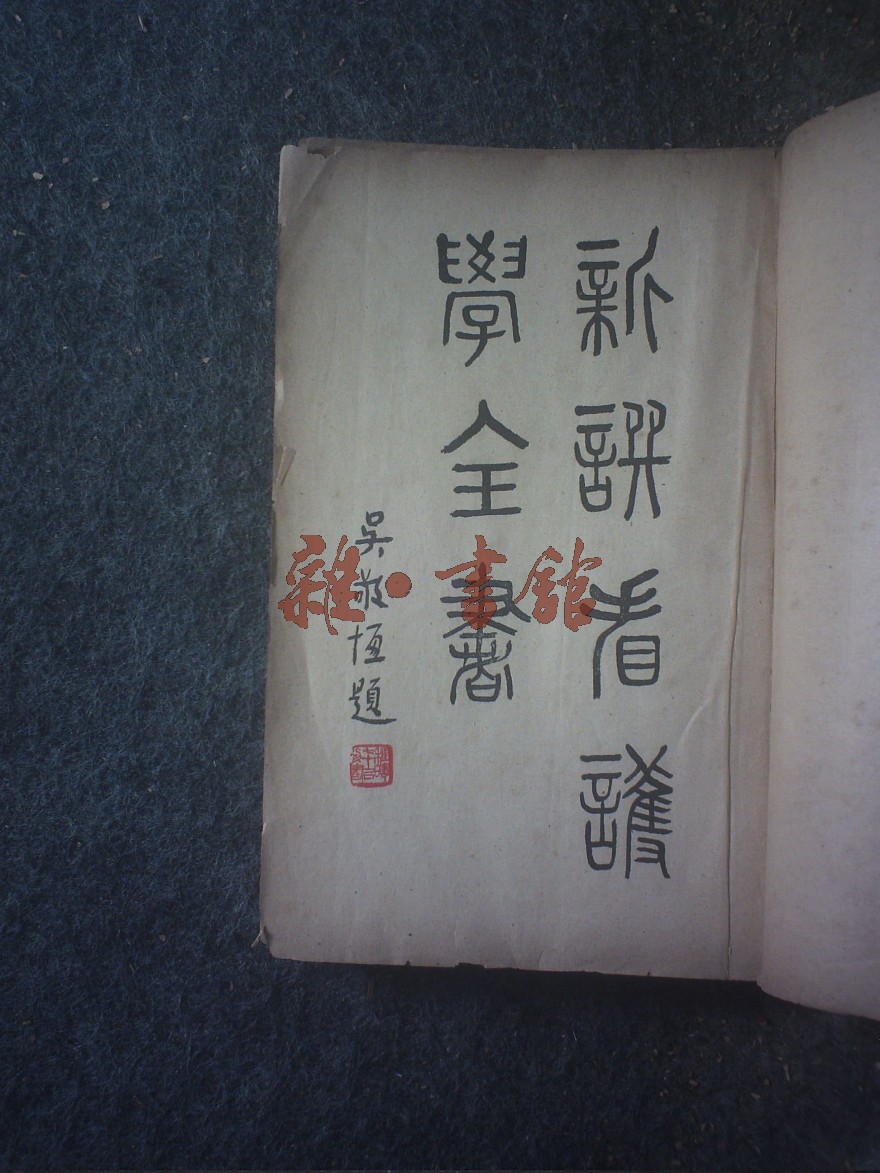 新譔看護
學全書
吳敬恆題
雜·書館